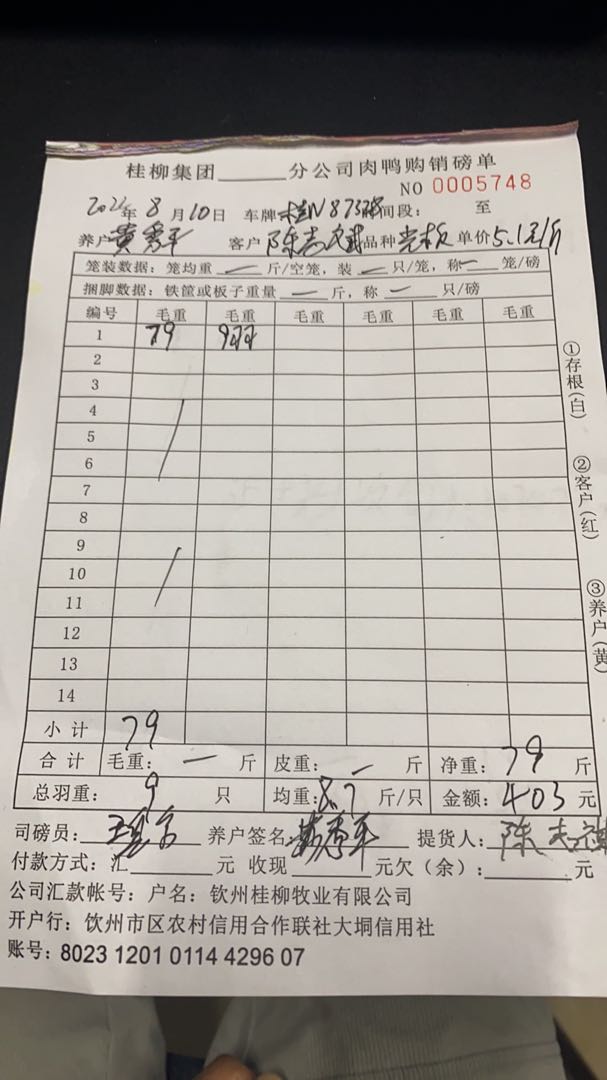 桂柳集团______分公司肉鸭购销磅单
NO 0005748
年 8 月 10 日 车牌 桂N 时间段: 至
养户 黄秀平 客户 品种 单价 5.1元/斤
笼装数据: 笼均重 — 斤/空笼, 装 — 只/笼, 称 — 笼/磅
捆脚数据: 铁筐或板子重量 — 斤, 称 — 只/磅
编号 毛重 毛重 毛重 毛重 毛重 毛重
1 79
2
3
4
5
6
7
8
9
10
11
12
13
14
小计 79
合计 毛重: — 斤 皮重: — 斤 净重: 79 斤
总羽重: 9 只 均重: 8.7 斤/只 金额: 403 元
司磅员: 养户签名: 黄秀平 提货人: 陈
付款方式: 汇______元 收现______元欠(余):______元
公司汇款帐号: 户名: 钦州桂柳牧业有限公司
开户行: 钦州市区农村信用合作联社大垌信用社
账号: 8023 1201 0114 4296 07
①存根(白)
②客户(红)
③养户(黄